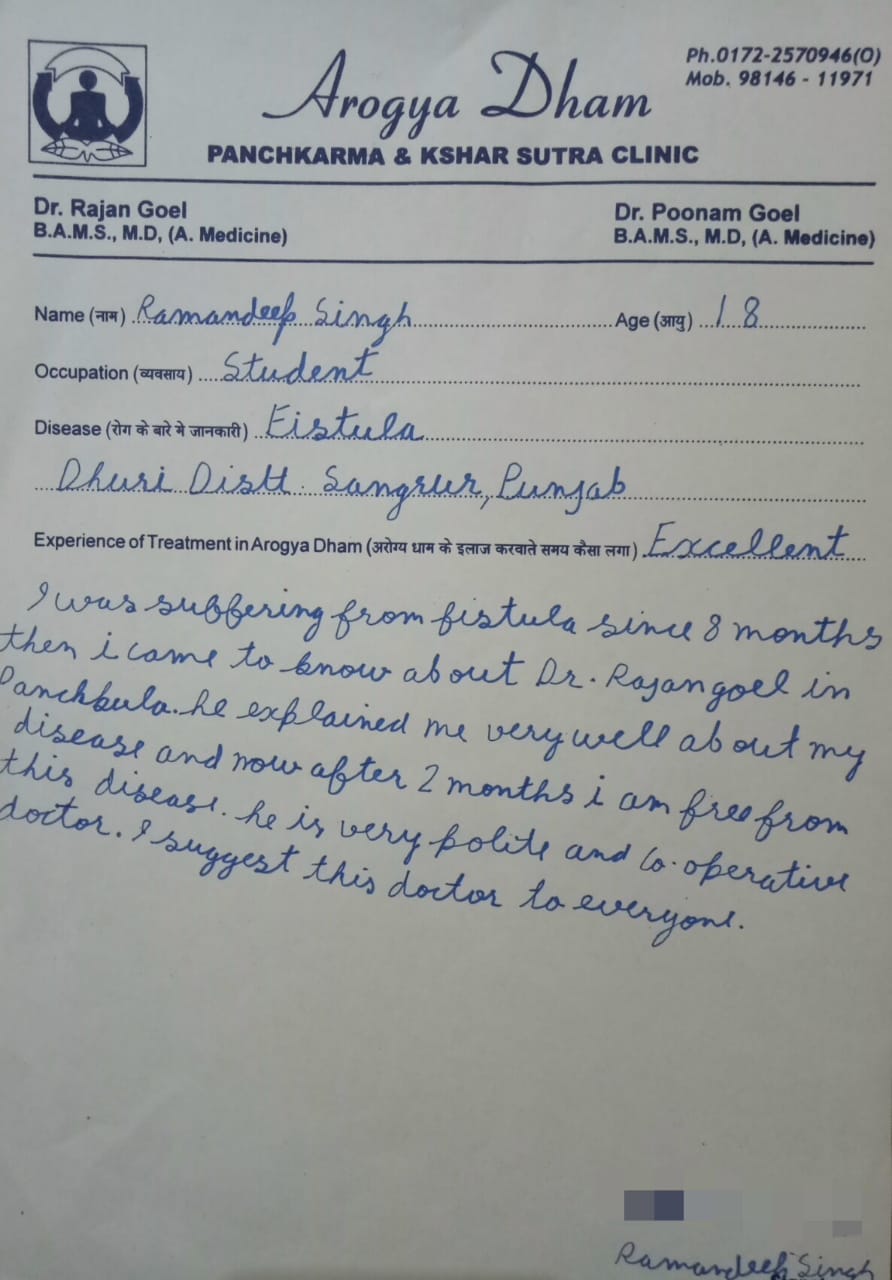 Ph.0172-2570946(O)
Mob. 98146 - 11971
Arogya Dham
PANCHKARMA & KSHAR SUTRA CLINIC
Dr. Rajan Goel
B.A.M.S., M.D, (A. Medicine)
Dr. Poonam Goel
B.A.M.S., M.D, (A. Medicine)
Name (नाम) Ramandeep Singh Age (आयु) 18
Occupation (व्यवसाय) Student
Disease (रोग के बारे मे जानकारी) Fistula
Dhuri Distt. Sangrur, Punjab
Experience of Treatment in Arogya Dham (अरोग्य धाम के इलाज करवाते समय कैसा लगा) Excellent
I was suffering from fistula since 8 months
then i came to know about Dr. Rajan goel in
Panchkula. he explained me very well about my
disease and now after 2 months i am free from
this disease. he is very polite and co-operative
doctor. I suggest this doctor to everyone.
Ramandeep Singh